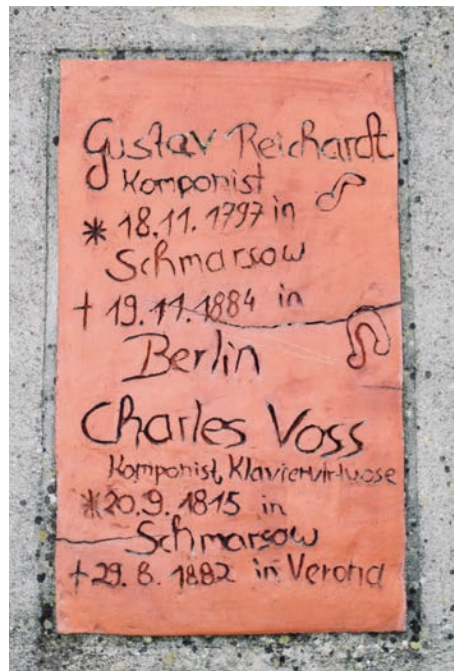 Gustav Reichardt
Komponist
* 18.11.1797 in
Schmarsow
† 19.11.1884 in
Berlin
Charles Voss
Komponist, Klaviervirtuose
*20.9.1815 in
Schmarsow
†29.8.1882 in Verona